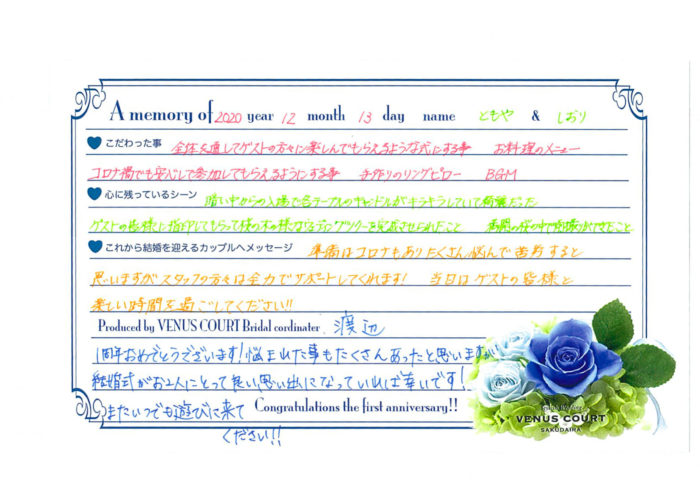 A memory of 2020 year 12 month 13 day name ともや & しおり
こだわった事 全体を通してゲストの方々に楽しんでもらえるような式にする事 お料理のメニュー
コロナ禍でも安心して参加してもらえるようにする事 手作りのリングピロー BGM
心に残っているシーン 暗い中からの入場で各テーブルのキャンドルがキラキラしていて綺麗だった
ゲストの皆様に指印してもらって桜の木の様な ウェディングツリーを完成させられたこと 満開の桜の中で ができたこと
これから結婚を迎えるカップルへメッセージ 準備はコロナもありたくさん悩んで苦労すると
思いますがスタッフの方々は全力でサポートしてくれます! 当日はゲストの皆様と
楽しい時間を過ごしてください!!
Produced by VENUS COURT Bridal cordinater 渡辺
1周年おめでとうございます!悩まれた事もたくさんあったと思いますが
結婚式がお2人にとって良い思い出になっていれば幸いです!
またいつでも遊びに来て Congratulations the first anniversary!!
ください!!
VENUS COURT
SAKUDAIRA